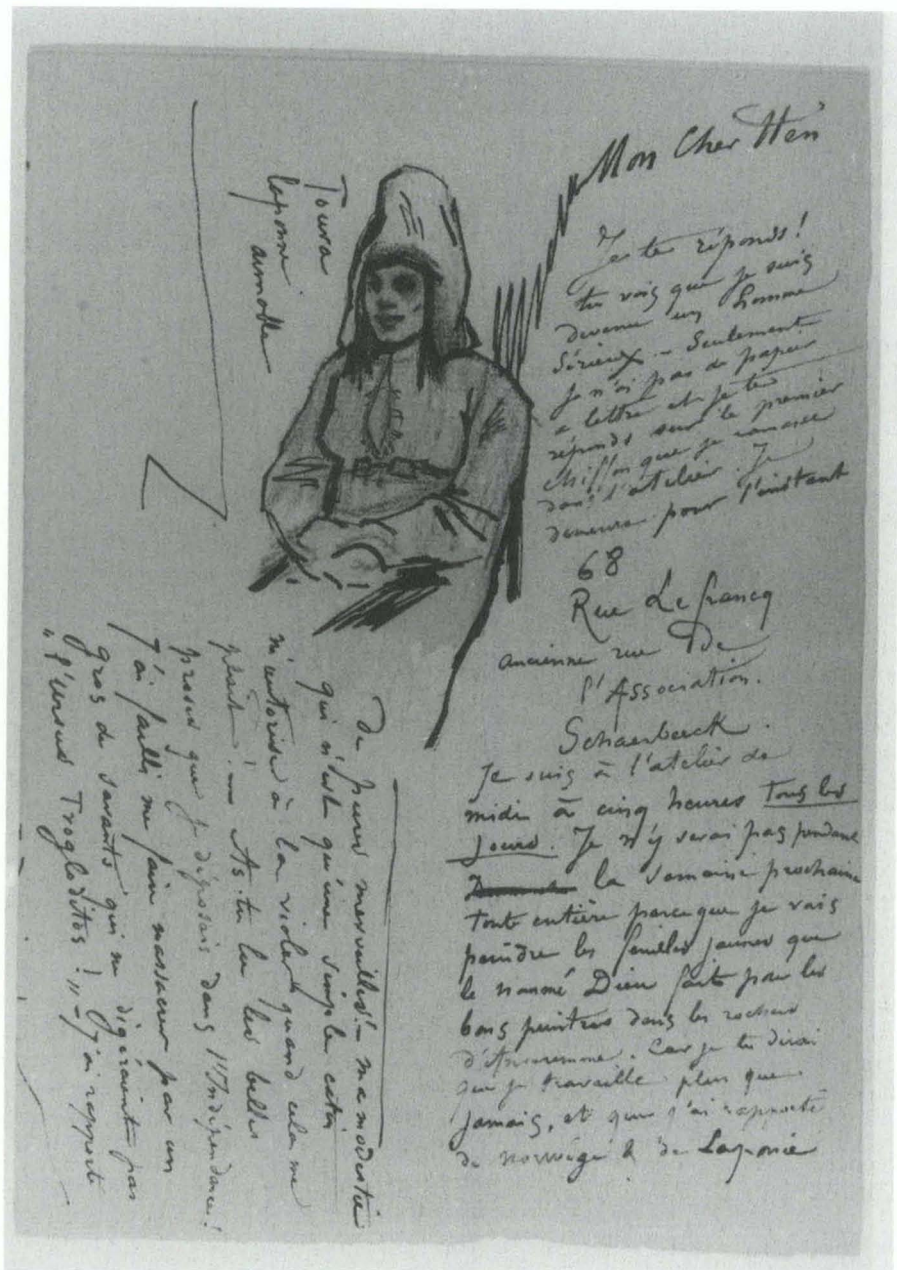 Mon Cher Hen
Je te réponds!
tu vois que je suis
devenu un homme
Sérieux - Seulement
je n'ai pas de papier
a lettre et je te
réponds sur le premier
chiffon que je ramasse
dans l'atelier. Je
demeure pour l'instant
68
Rue Lefrancq
ancienne rue De
l'Association.
Schaerbeeck.
Je suis à l'atelier de
midi à cinq heures tous les
jours. Je n'y serai pas pendant
la semaine prochaine
toute entière parce que je vais
peindre les feuilles jaunes que
le nommé Dieu faite pour les
bons peintres dans les rochers
d'Anseremme. Car je te dirai
que je travaille plus que
jamais, et que j'ai rapporté
de norwége & de Laponie
de pures merveilles! - ma modestie
qui n'est qu'une simple catin
m'autorise à la violer quand cela me
plait! - As-tu lu les belles
proses que je déposais dans l'Indépendance!
J'ai failli me faire massacrer par un
gros de savants qui ne digéraient pas
"l'ursus Trogloditos!" - J'ai rapporté
Toura
laponne